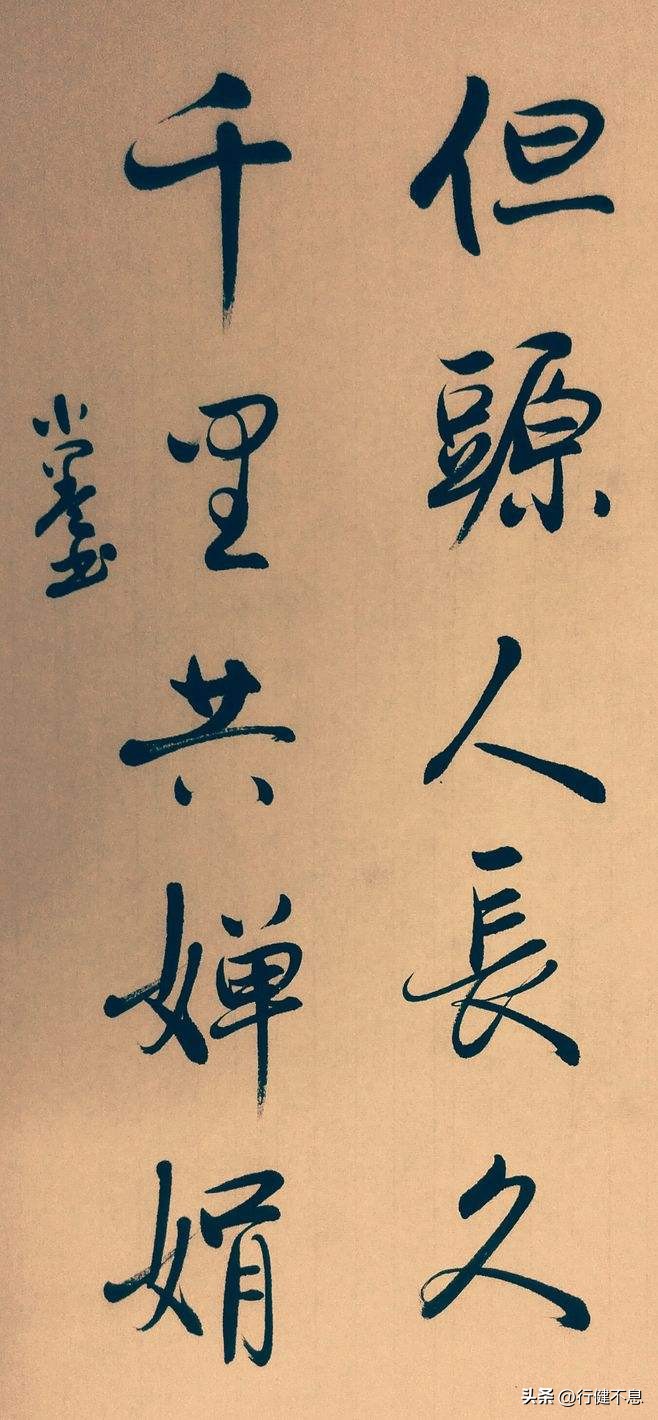 但願人長久
千里共嬋娟
小墨書
头条 @行健不息